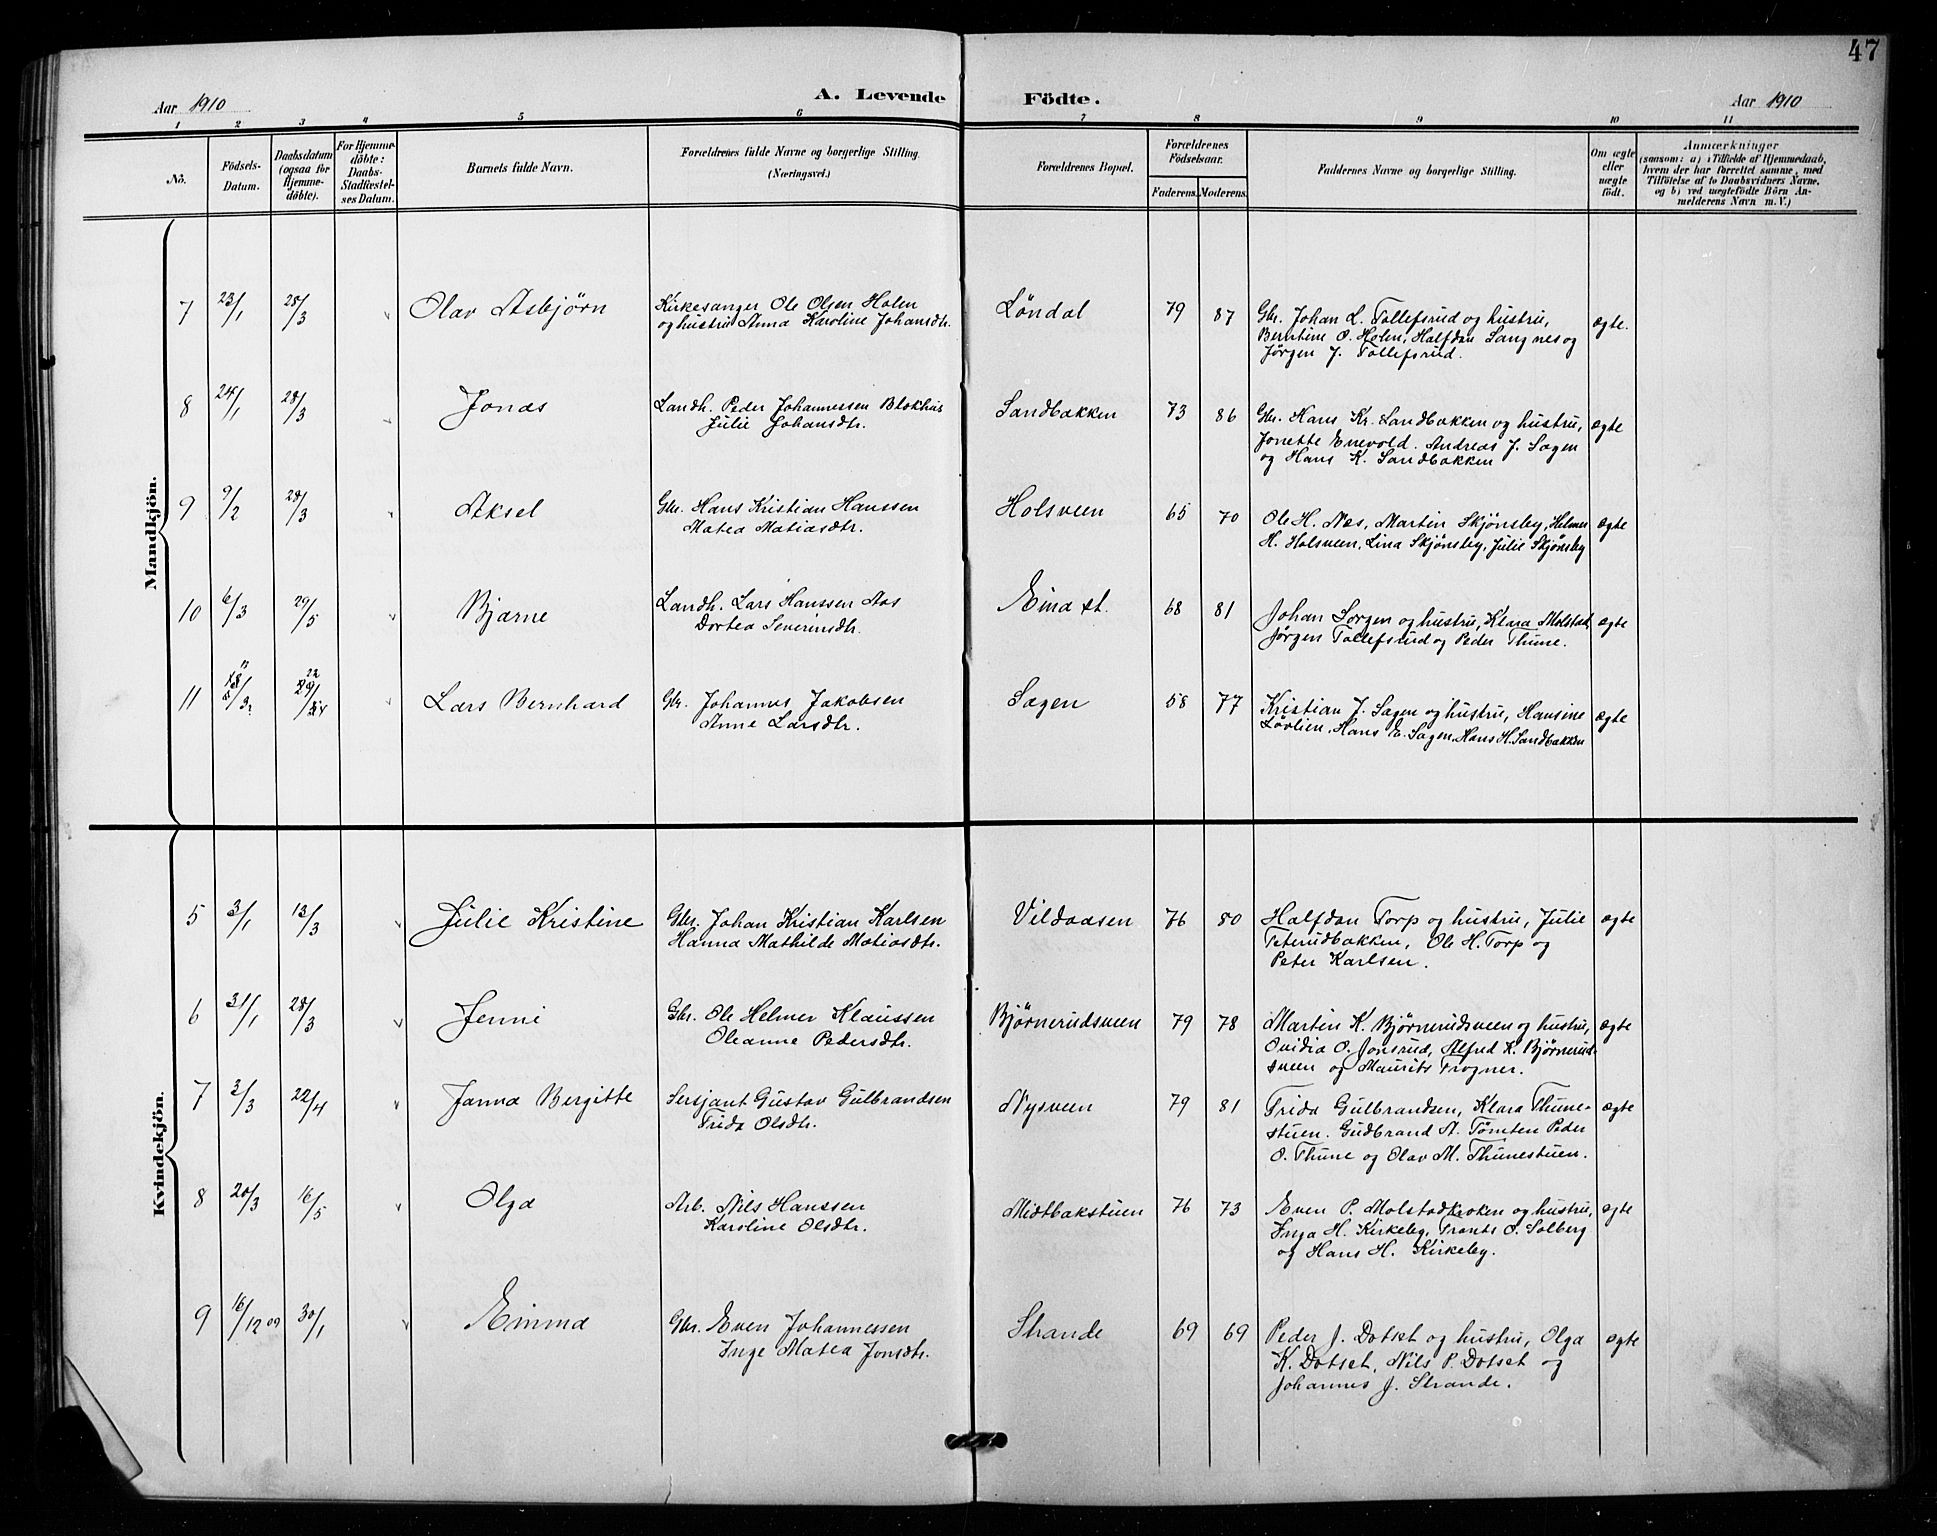 47
Aar 1910
A. Levende Födte.
Aar 1910
1 2 3 4 5 6 7 8 9 10 11
No.
Födsels-
Datum.
Daabsdatum
(ogsaa for
Hjemme-
döbte).
For Hjemme-
döbte:
Daabs-
Stadfæstel-
ses Datum.
Barnets fulde Navn.
Forældrenes fulde Navne og borgerlige Stilling.
(Næringsvei.)
Forældrenes Bopæl.
Forældrenes
Födselsaar.
Faderens. Moderens.
Faddernes Navne og borgerlige Stilling.
Om ægte
eller
uægte
födt.
Anmærkninger
(saasom: a) i Tilfælde af Hjemmedaab,
hvem der har forrettet samme, med
Tilföielse af to Daabsvidners Navne,
og b) ved uægtefödte Börn An-
melderens Navn m. V.)
Mandkjön.
7 23/1 28/3 Olav Asbjørn Kirkesanger Ole Olsen Holen Løndal 79 87 Gbr. Johan L. Tollefsrud og hustru, ægte.
og hustru Anna Karoline Johansdtr. Berntine O. Holen, Halfdan Sangnes og
Jørgen J. Tollefsrud.
8 24/1 28/3 Jonas Landh. Peder Johannessen Blokhus Sandbakken 73 86 Gbr. Hans Kr. Sandbakken og hustru, ægte
Julie Johansdtr. Jonette Enevold. Andreas J. Sagen
og Hans K. Sandbakken
9 9/2 28/3 Aksel Gbr. Hans Kristian Hanssen Holsveen 65 70 Ole H. Næs, Martin Skjønsby, Helmer ægte
Matea Matiasdtr. H. Holsveen, Lina Skjønsby, Julie Skjønsby
10 6/3 29/5 Bjarne Landh. Lars Hanssen Aas Eina st. 68 81 Johan Sørgen og hustru, Klara Molstad, ægte
Dortea Severinsdtr. Jørgen Tollefsrud og Peder Thune.
11 Lars Bernhard Gbr. Johannes Jakobsen Sagen 58 77 Kristian J. Sagen og hustru, Hansine ægte
Anne Larsdtr. Løvlien, Hans E. Sagen, Hans H. Sandbakken
Kvindekjön.
5 3/1 13/3 Julie Kristine Gbr. Johan Kristian Karlsen Vildaasen 76 80 Halfdan Torp og hustru, Julie ægte
Hanna Mathilde Matiasdtr. Teterudbakken, Ole H. Torp og
Peter Karlsen.
6 31/1 28/3 Jenni Gbr. Ole Helmer Klaussen Bjørnerudsveen 79 78 Martin K. Bjørnerudsveen og hustru, ægte
Oleanne Pedersdtr. Ovidia O. Jonsrud, Alfred K. Bjørnerud-
sveen og Maurits Trogner.
7 3/3 22/4 Janna Bergitte Sersjant Gustav Gulbrandsen Nysveen 79 81 Frida Gulbrandsen, Klara Thune- ægte
Frida Olsdtr. stuen. Gudbrand A. Tømten Peder
O. Thune og Olav M. Thunestuen.
8 20/3 16/5 Olga Arb. Nils Hanssen Midtbakstuen 76 73 Even P. Molstadkroken og hustru, ægte
Karoline Olsdtr. Inga H. Kirkeby, Frants O. Solberg
og Hans H. Kirkeby.
9 16/12 09 30/1 Emma Gbr. Even Johannessen Strande 69 69 Peder J. Dotset og hustru, Olga ægte
Inge Matea Jonsdtr. K. Dotset, Nils P. Dotset og
Johannes J. Strande.